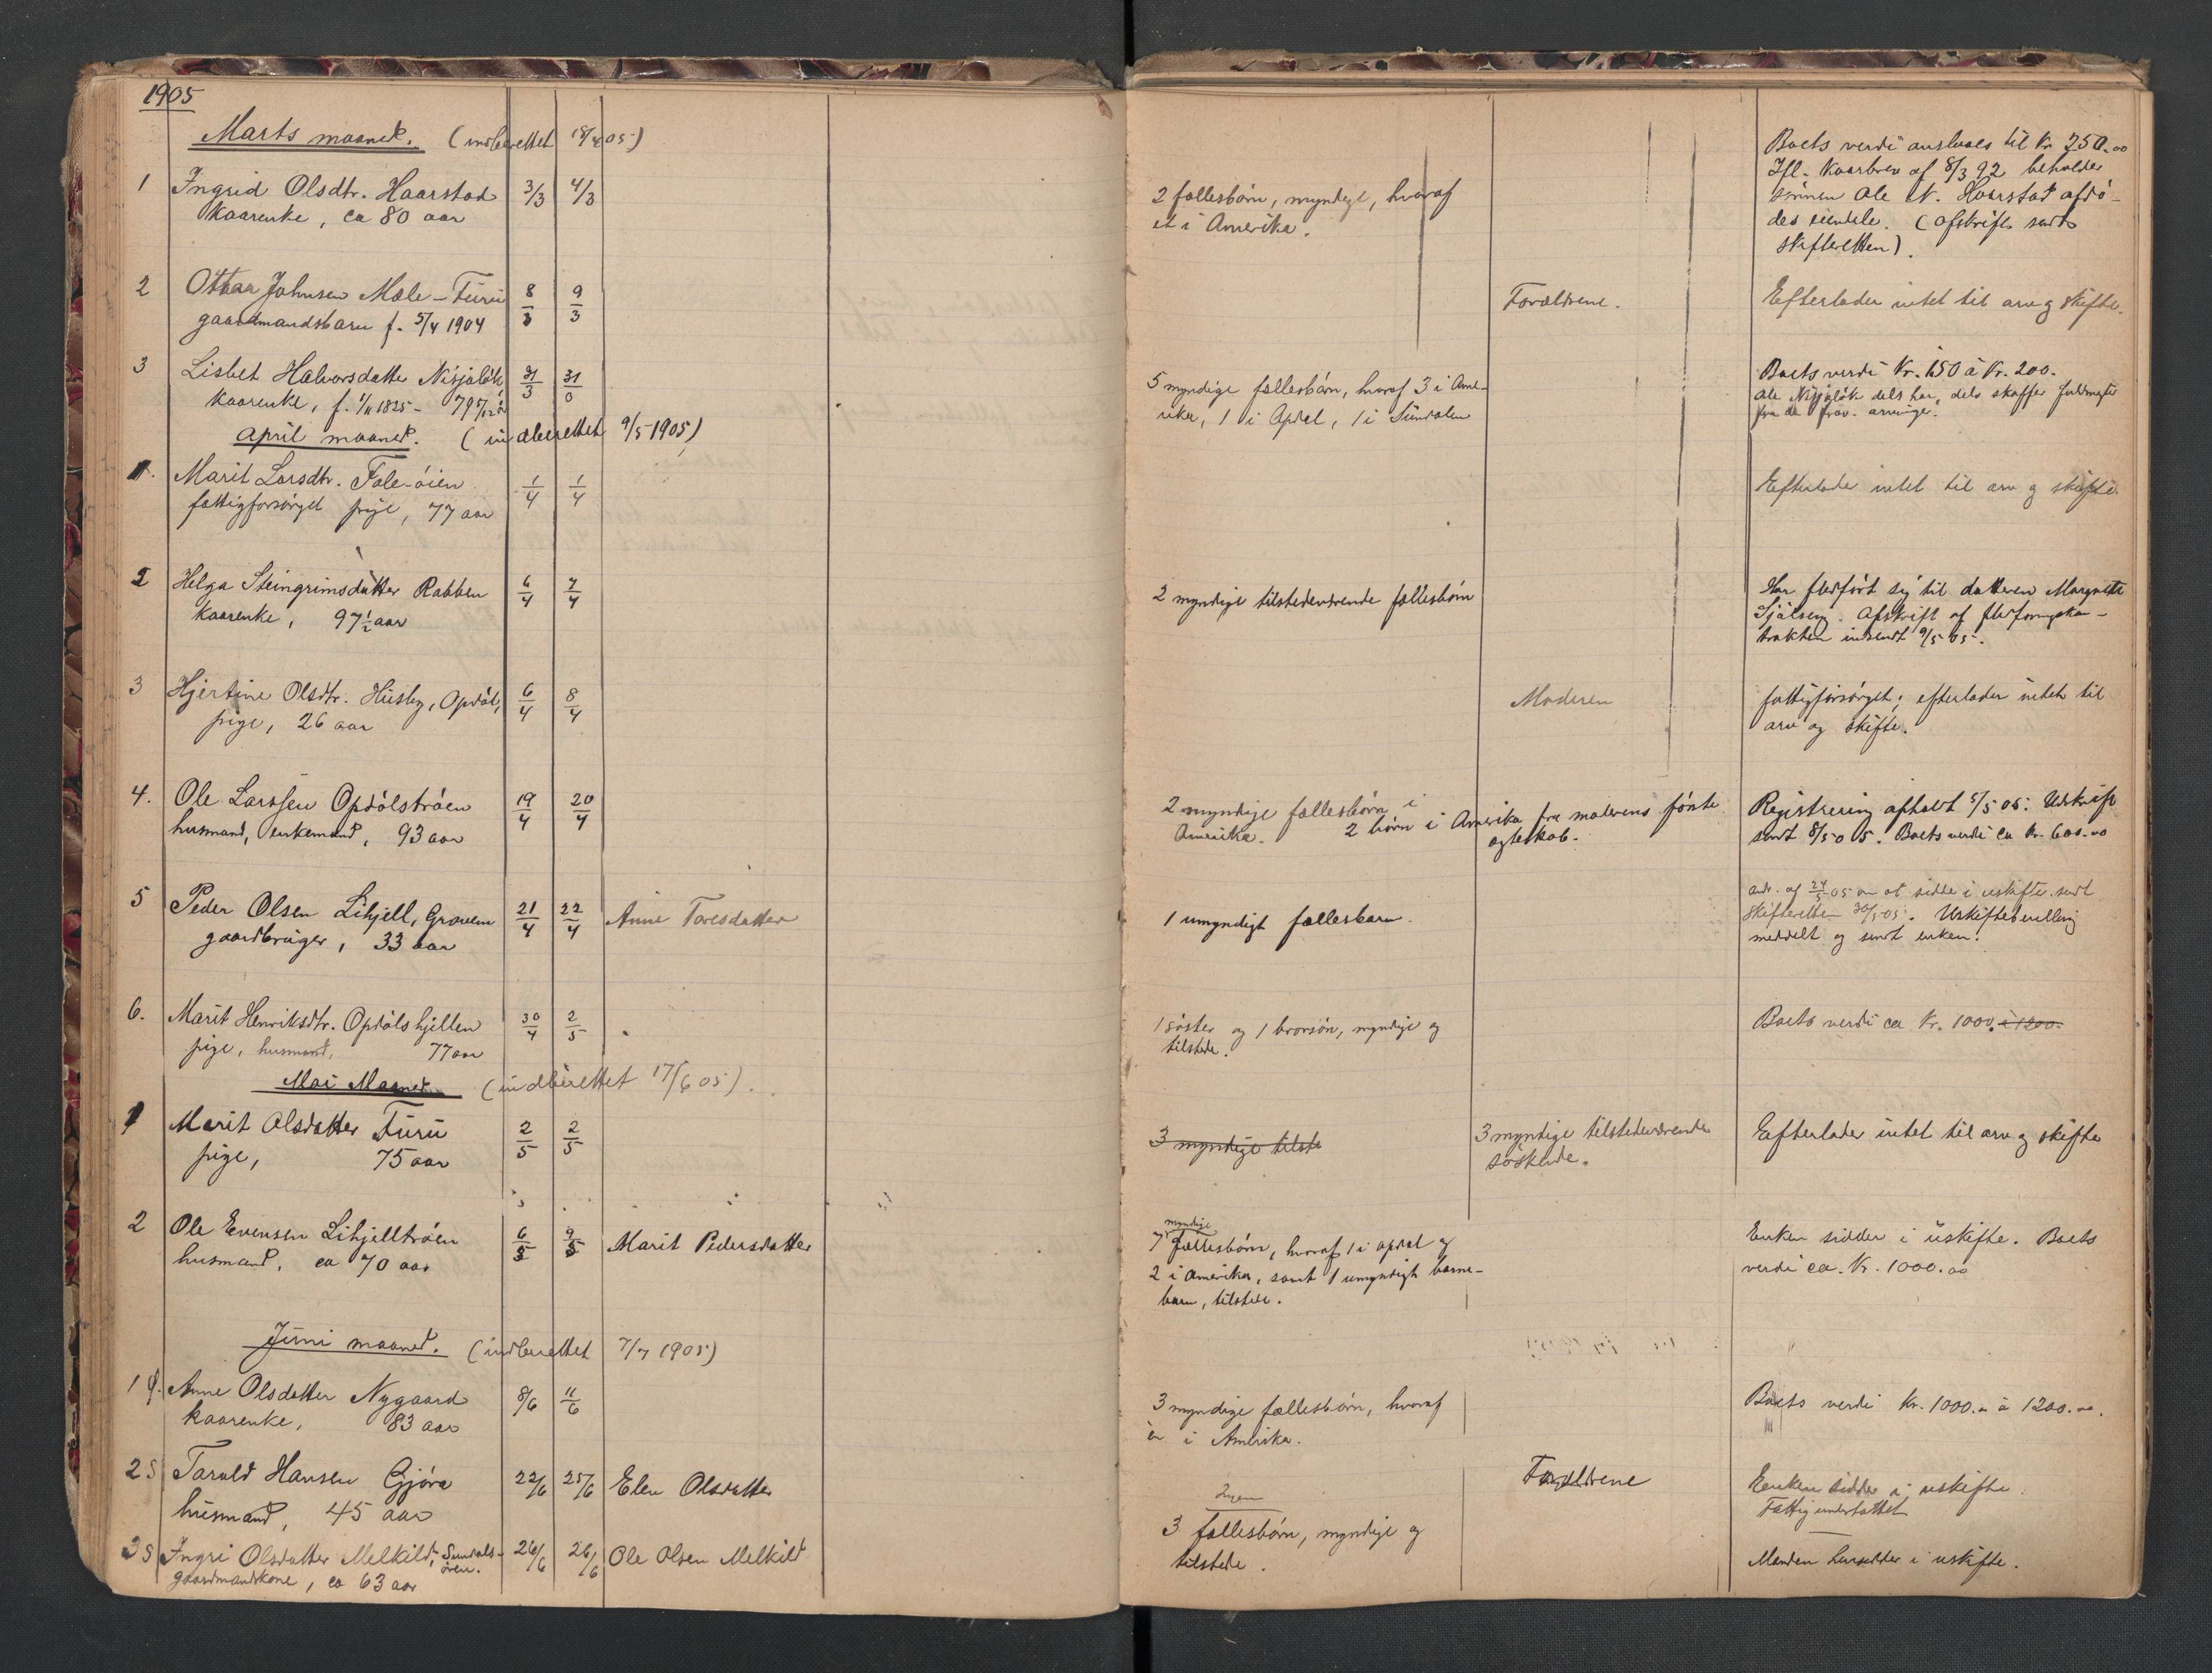 1905
Marts maaned. (indberettet 18/4 05)
1 Ingrid Olsdtr. Haarstad 3/3 4/3
kaarenke, ca 80 aar
2 fællesbörn, myndige, hvoraf
et i Amerika.
Boets verdi ansloaes til Kr. 250.00
Ifl. kaarbrev af 8/3 92 beholder
sönnen Ole N. Haarstad afdö-
des eiendele. (Afskrift sendt
skifteretten).
2 Ottar Johnsen Mæle-Furu 8/3 9/3
gaardmandsbarn f. 5/4 1904
Forældrene.
Efterlader intet til arv og skifte.
3 Lisbet Halvorsdatter Nisjalök 31/3 31/0
kaarenke, f. 1/11 1825 - 79 5/12 a
5 myndige fællesbörn, hvoraf 3 i Ame-
rika, 1 i Opdal, 1 i Sundalen
Boets verdi Kr. 150 à Kr. 200.
Ole Nisjalök dels har, dels skaffer fuldmagter
fra de frav. arvinger.
April maaned. (indberettet 9/5 1905)
1. Marit Larsdtr. Fale-öien 1/4 1/4
fattigforsörget pige, 77 aar
Efterlader intet til arv og skifte.
2 Helga Steingrimsdatter Rabben 6/4 7/4
kaarenke, 97½ aar
2 myndige tilstedeværende fællesbörn
Har fledfört sig til datteren Margrette
Sjölseng. Afskrift af
trakten indsendt 9/5 05.
3 Hjertine Olsdtr. Husby, Opdöl, 6/4 8/4
pige, 26 aar
Moderen
fattigforsörget; efterlader intet til
arv og skifte.
4. Ole Larssen Opdölströen 19/4 20/4
husmand, enkemand, 93 aar
2 myndige fællesbörn i
Amerika. 2 börn i Amerika fra moderens förste
egteskab.
Registrering afholdt 5/5 05. Udskrift
sendt 8/5 05. Boets verdi ca Kr. 600.00
5 Peder Olsen Lihjell, Gravem 21/4 22/4 Anne Toresdatter
gaardbruger, 33 aar
1 umyndigt fællesbarn.
andr. af 24/5 05 om at sidde i uskifte sendt
skifteretten 30/5 05. Uskiftebevilling
meddelt og sendt enken.
6. Marit Henriksdtr. Opdölshjellen 30/4 2/5
pige, husmand, 77 aar
1 söster og 1 brorsön, myndige og
tilstede.
Boets verdi ca Kr. 1000. à 1200.
Mai Maaned (indberettet 17/6 05).
1 Marit Olsdatter Furu 2/5 2/5
pige, 75 aar
3 myndige tilste
3 myndige tilstedeværende
söskende.
Efterlader intet til arv og skifte
2 Ole Evensen Lihjelltröen 6/5 9/5 Marit Pedersdatter
husmand, ca 70 aar
myndige
7 fællesbörn, hvoraf 1 i Opdal og
2 i Amerika, samt 1 umyndigt barne-
barn, tilstede.
Enken sidder i uskifte. Boets
verdi ca. Kr. 1000.00
Juni maaned. (indberettet 7/7 1905)
1 Anne Olsdatter Nygaard 8/6 11/6
kaarenke, 83 aar
3 myndige fællesbörn, hvoraf
én i Amerika.
Boets verdi Kr. 1000.- à 1200.00.
2 Tarald Hansen Gjöra 22/6 25/6 Elen Olsdatter
husmand, 45 aar
Ingen
Forældrene
Enken sidder i uskifte.
Fattig understöttet
3 Ingri Olsdatter Melkild, Sundals- 26/6 26/6 Ole Olsen Melkild
ören.
gaardmandskone, ca 63 aar
3 fællesbörn, myndige og
tilstede.
Manden hensidder i uskifte.